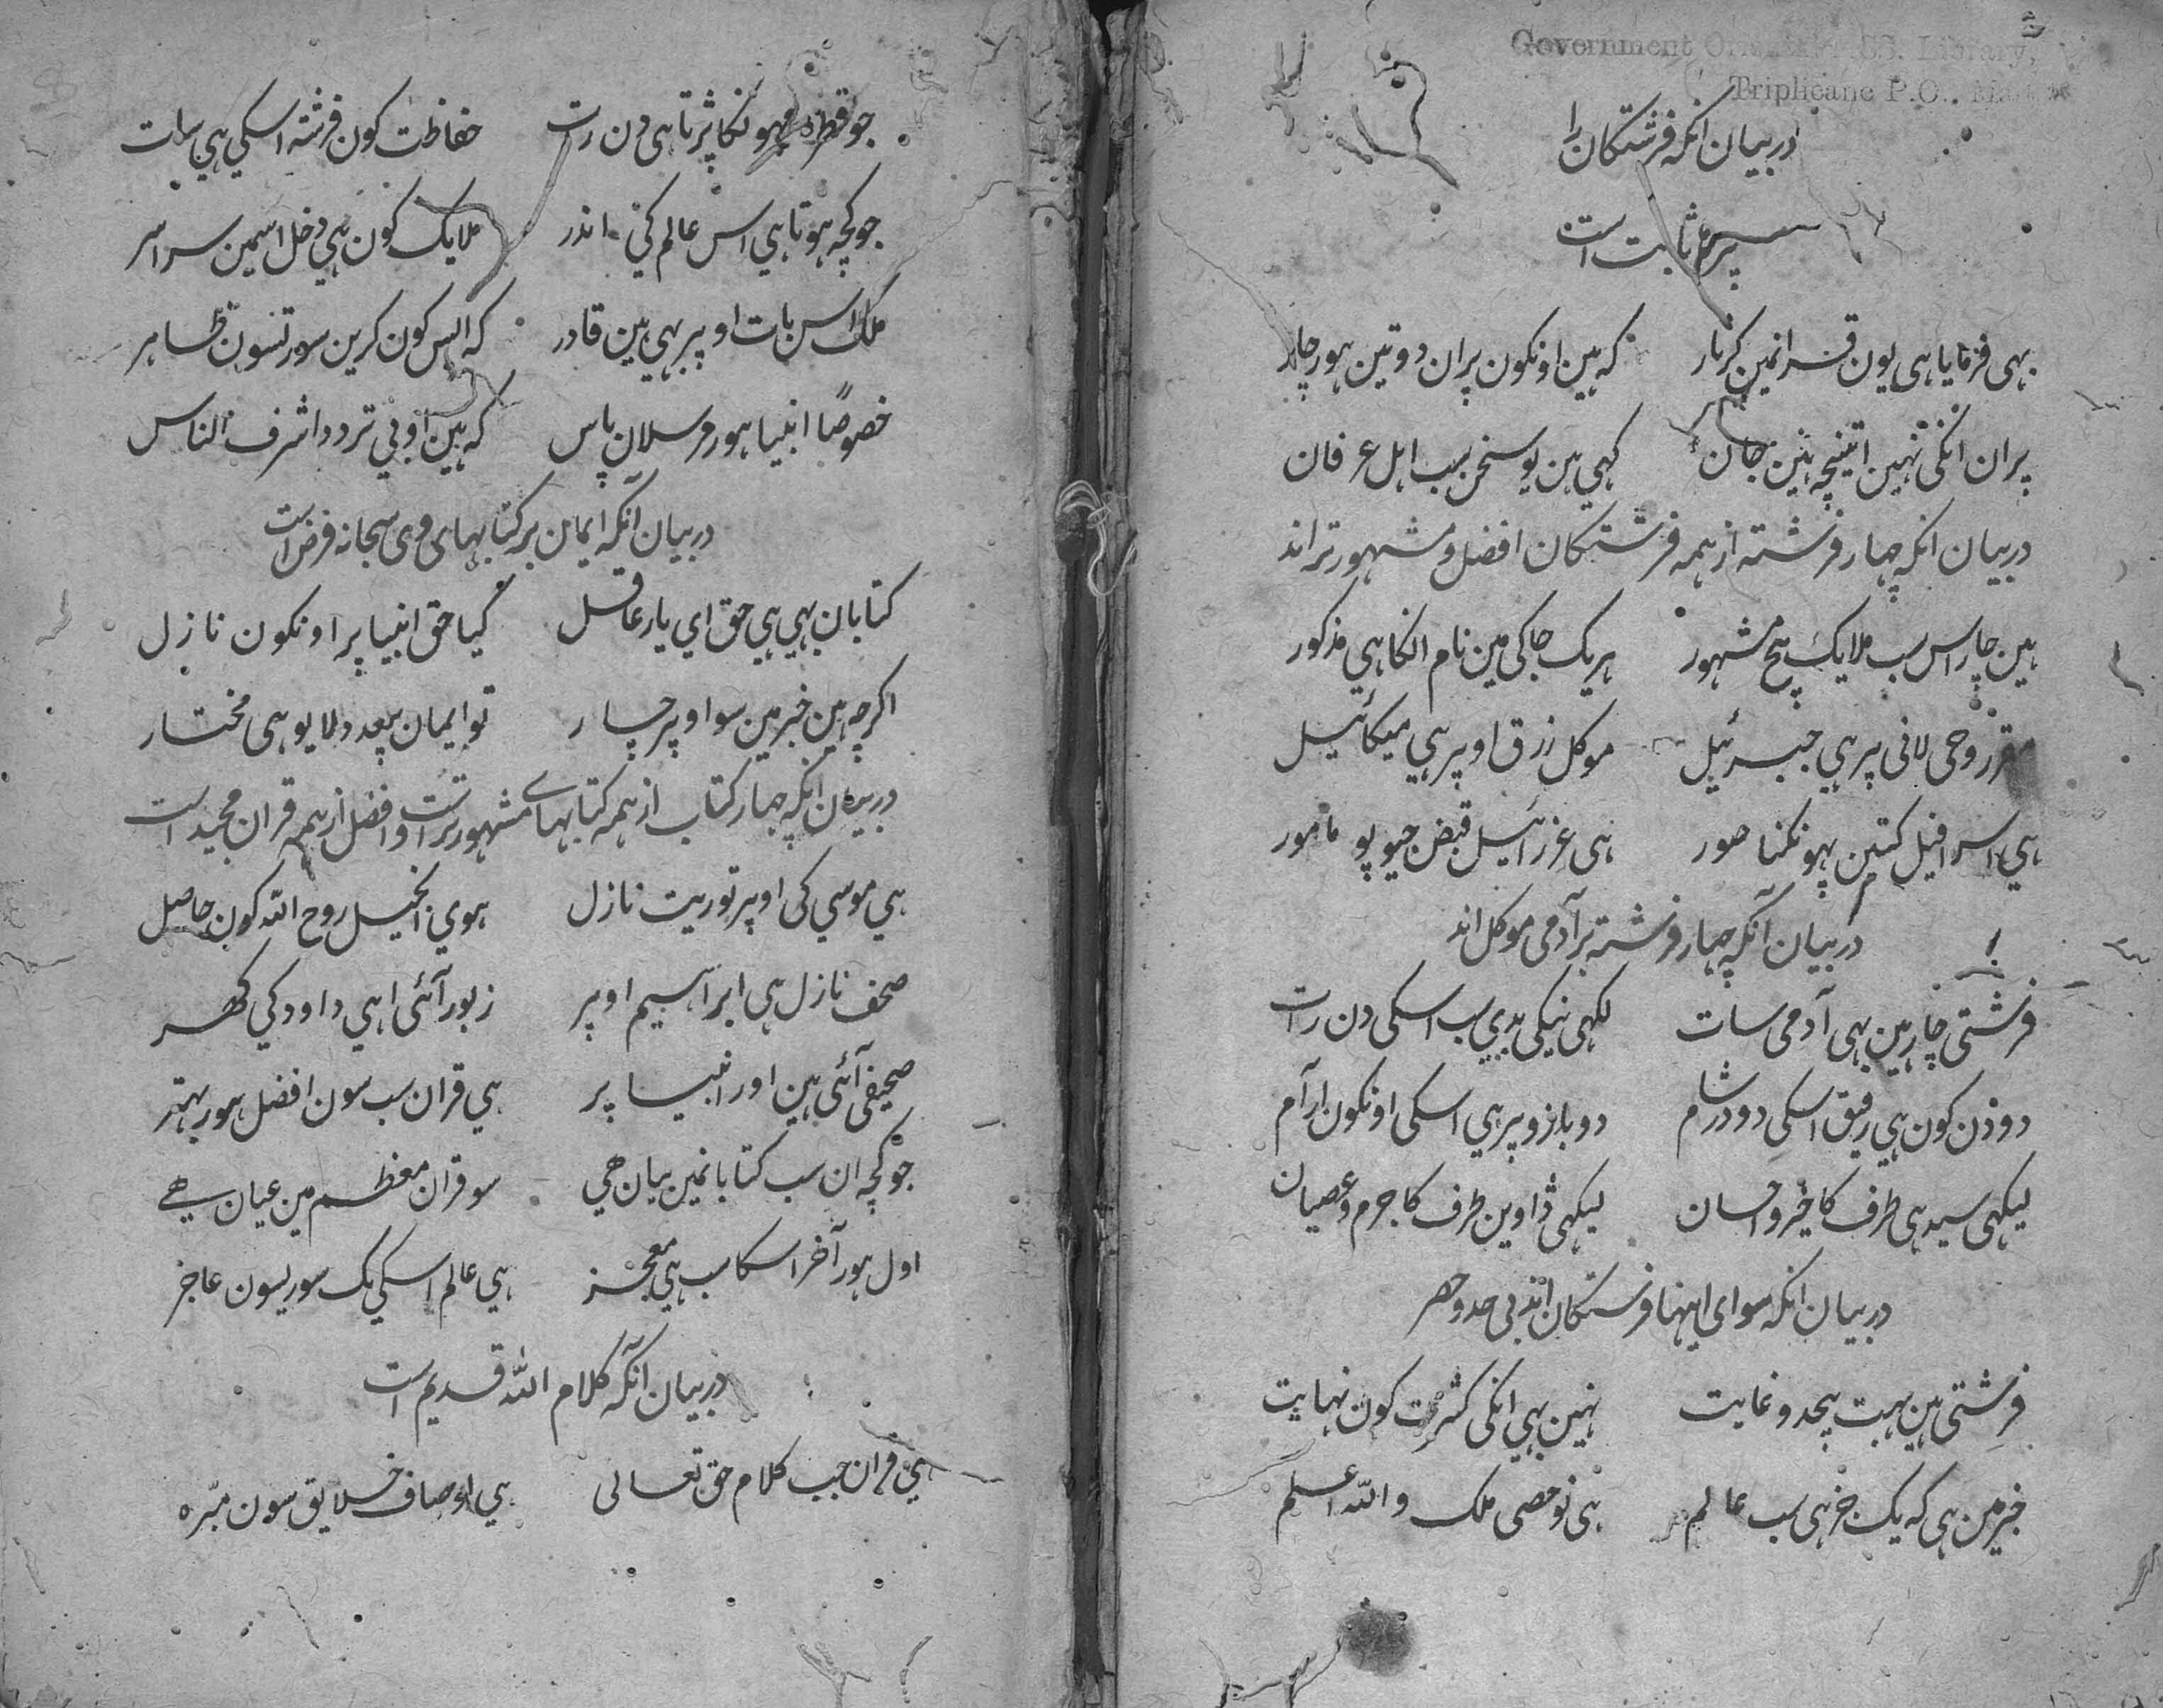 Government Oriental MSS. Library,
Triplicane P.O., Madras
در بیان انکه فرشتکان را
پرها ثابت است
بهی فرمایا هی یون قرانمین کرتار کہ ہین اونکون پران دو تین ہور چار
پران انکی نہین اتینچہ ہین جان کہی ہن یو سخن سب اہل عرفان
در بیان انکہ چہار فرشتہ از ہمہ فرشتکان افضل و مشہورتر اند
ہین چار اس سب ملایک بیچ مشہور ہریک جاکی مین نام انکا ہی مذکور
مقرر وحی لانی پر ہی جبرئیل موکل رزق اوپر ہی میکائیل
ہی اسرافیل کتین پھونکنا صور ہی عزرائیل قبض جیو پو مامور
در بیان آنکہ چہار فرشتہ بر آدمی موکل اند
فرشتی چار ہین بہی آدمی سات لکہی نیکی بدی سب اسکی دن رات
دو دن کون ہی رفیق اسکی دو در شام دو بازو پر ہی اسکی اونکون ارام
لیکہی سیدہی طرف کا خیر و احسان لیکہی ڈاوین طرف کا جرم و عصیان
در بیان انکہ سوای اینها فرشتکان اند بی حد و حصر
فرشتی ہین بہت بیحد و غایت نہین بہی انکی کثرت کون نہایت
خبر مین ہی کہ یک جز ہی سب عالم ہی نو حصی ملک واللہ اعلم
جو قطرہ مہونکا پڑتا ہی دن رات حفاظت کون فرشتہ اسکی ہی سات
جو کچہ ہوتا ہی اس عالم کی اندر ملایک کون ہی دخل اسمین سراسر
ملک اس بات اوپر بہی ہین قادر کہ اپس کون کرین سورتسون ظاہر
خصوصًا انبیا ہور مرسلان پاس کہ ہین او بی تردد اشرف الناس
در بیان آنکہ ایمان بر کتابہای وی سبحانہ فرض است
کتابان بہی ہی حق ای یار عاقل کیا حق انبیا پر اونکون نازل
اکرچہ ہین خبر مین سو اوپر چار تو ایمان بیعدد لا یو ہی مختار
در بیان آنکہ چہار کتاب از ہمہ کتابہای مشہورتر است و افضل از ہمہ قران مجید است
ہی موسی کی اوپر توریت نازل ہوی انجیل روح اللہ کون حاصل
صحف نازل ہی ابراہیم اوپر زبور آئی اہی داود کی کھر
صحیفی آئی ہین اور انبیا پر ہی قران سب سون افضل ہور بہتر
جو کچہ ان سب کتابانمین بیان ھی سو قران معظم مین عیان ہے
اول ہور آخر اسکا سب ہی معجز ہی عالم اسکی یک سوریسون عاجز
در بیان آنکہ کلام اللہ قدیم است
ہی قران جب کلام حق تعالی ہی اوصاف خلایق سون مبرہ